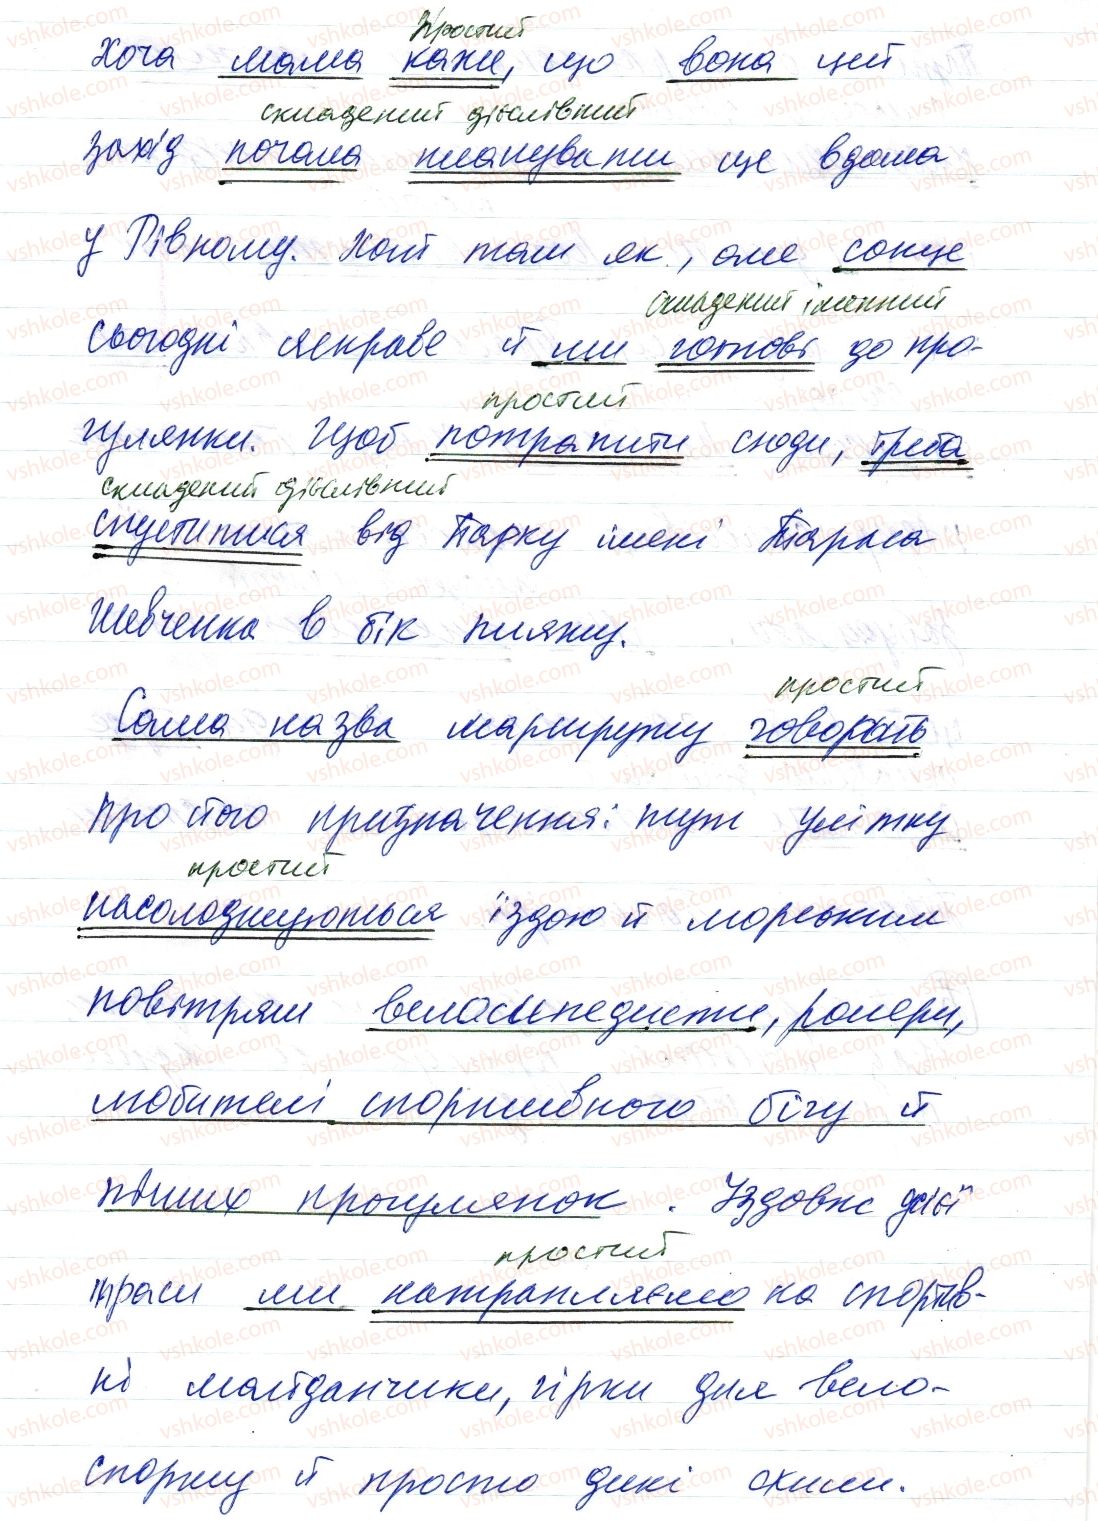 простий
Хоча мама каже, що вона цей
складений дієслівний
захід почала планувати ще вдома
у Рівному. Хай там як, але сонце
складений іменний
сьогодні яскраве й ми готові до про-
простий
гулянки. Щоб потрапити сюди, треба
складений дієслівний
спуститися від Парку імені Тараса
Шевченка в бік пляжу.
простий
Сама назва маршруту говорить
про його призначення: тут улітку
простий
насолоджуються їздою й морським
повітрям велосипедисти, ролери,
любителі спортивного бігу й
піших прогулянок. Уздовж усієї
простий
траси ми натрапляємо на спортив-
ні майданчики, гірки для вело-
спорту й просто дикі схили.